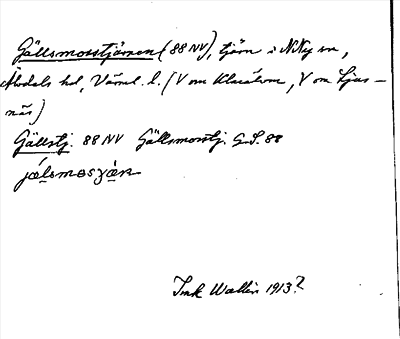 Gällsmosstjärnen (88 NV), tjärn i N Ny sn,
Älvdals hd, Värml. l. (V om Klarälven, V om Ljus-
näs)
Gällstj. 88 NV Gällsmosstj. G.S. 88
Ink Wallin 1913?